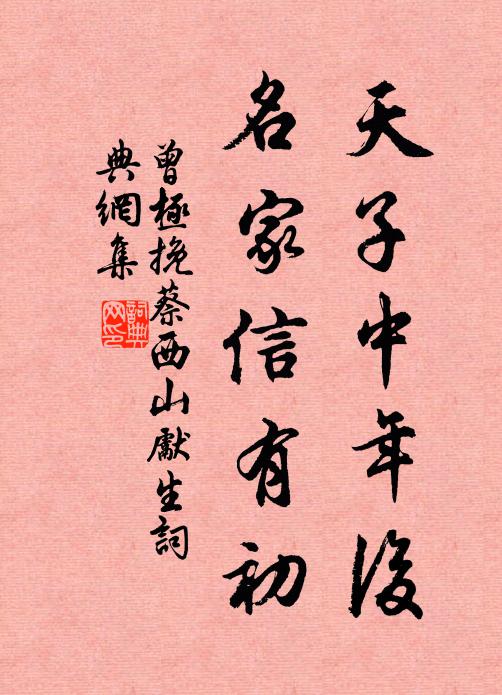 天子中年後
名家信有初
曾極挽蔡西山獻生詞
典網集
詞典网印